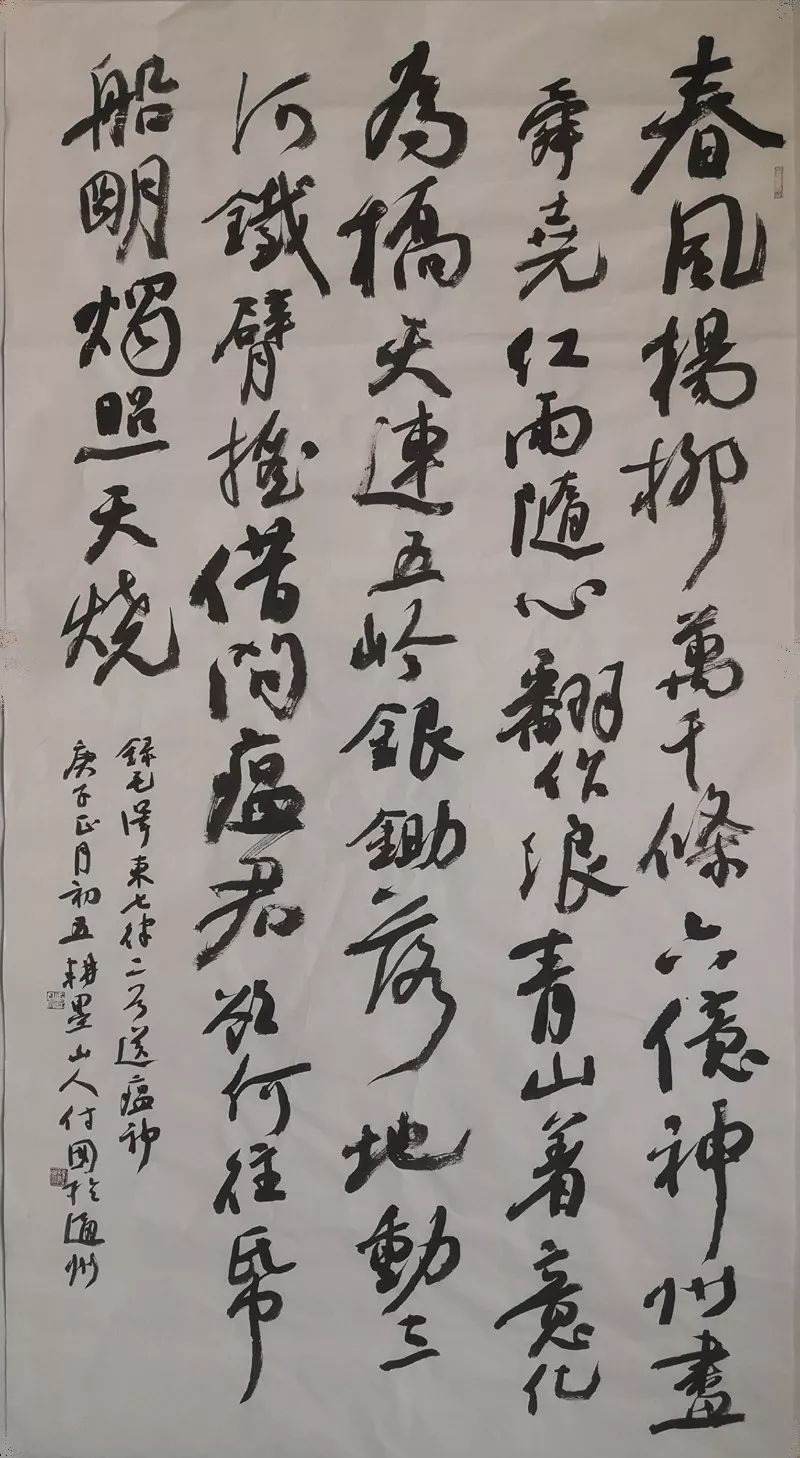 春風楊柳萬千條六億神州盡
舜堯红雨隨心翻作浪青山着意化
為橋天連五岭銀鋤落地動三
河鐵臂摇借問瘟君欲何往帋
船明燭照天燒
録毛澤東七律二首送瘟神
庚子正月初五耕墨山人付國於通州